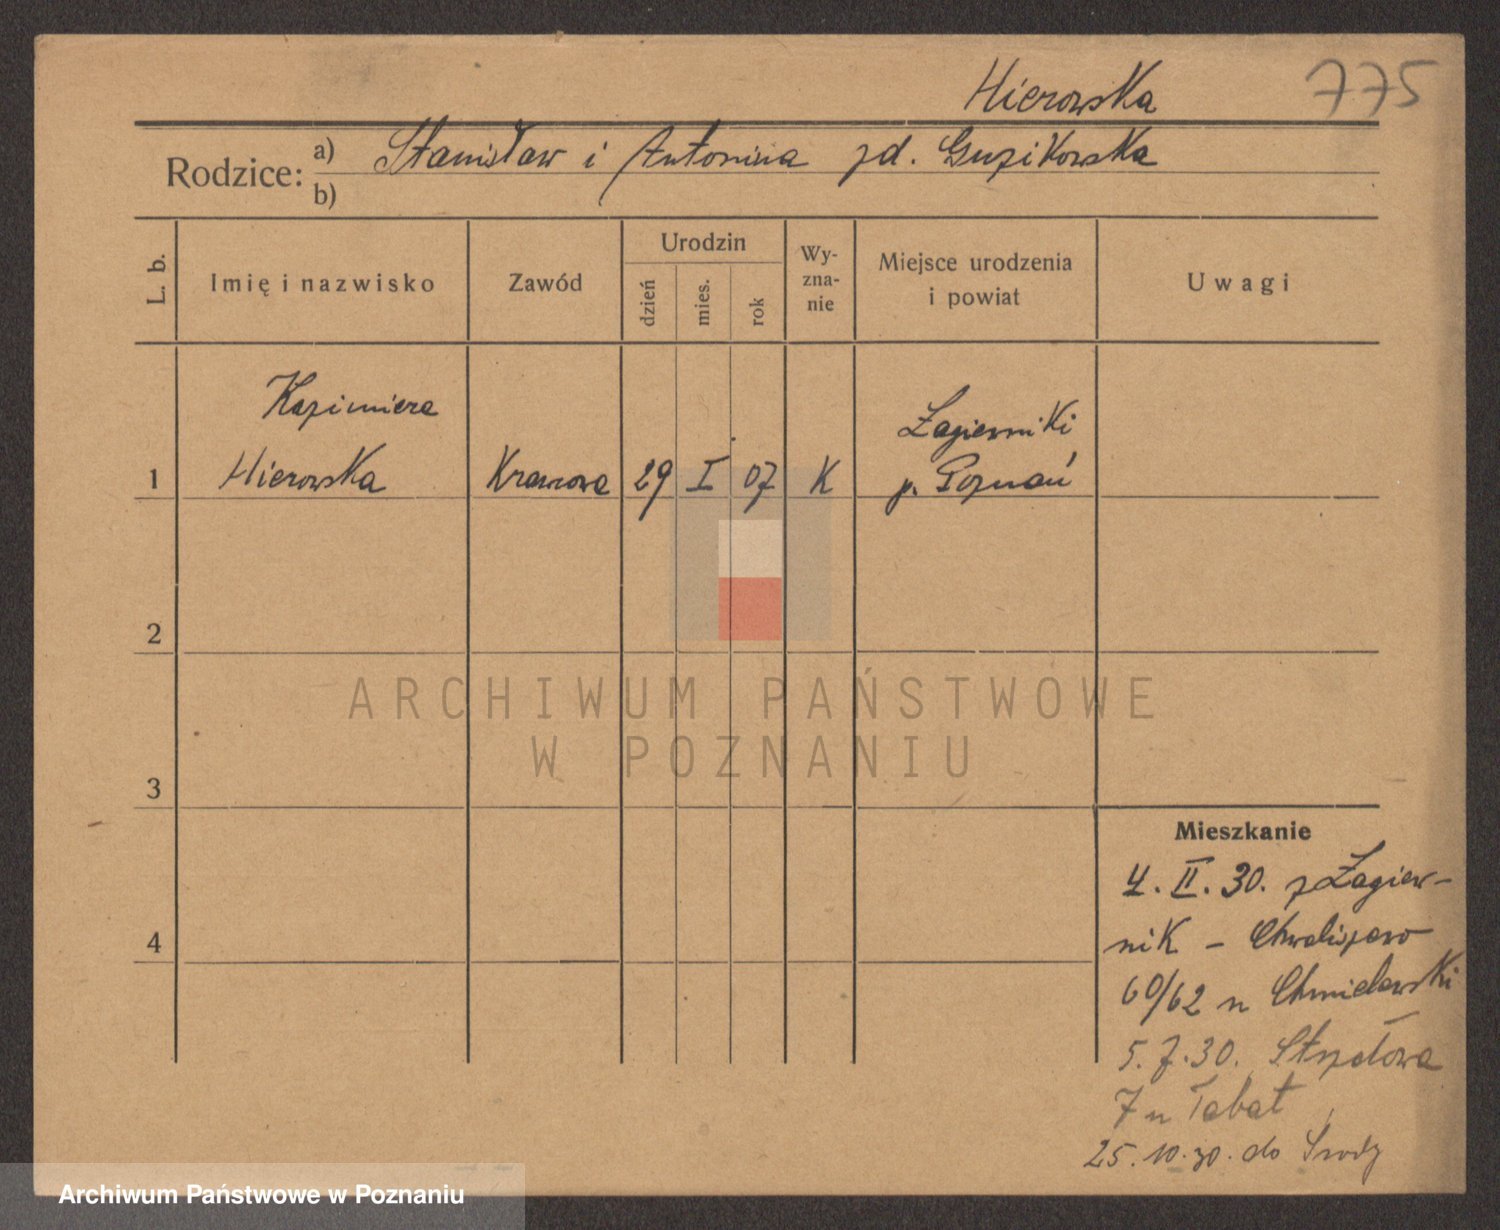 Hierowska 775
Rodzice: a) Stanisław i Antonina zd. Guzikowska
b)
L. b.
Imię i nazwisko
Zawód
Urodzin
dzień
mies.
rok
Wy-
zna-
nie
Miejsce urodzenia
i powiat
Uwagi
Kazimiera
Hierowska
1
Krawcowa
29 I 07
K
Żagiewniki
p. Poznań
2
3
4
ARCHIWUM PAŃSTWOWE
W POZNANIU
Mieszkanie
4. II. 30. z Żagiew-
nik - Chwaliszewo
60/62 u Chmielewski
5. 7. 30.
7 u
25. 10. 30. do Środy
Archiwum Państwowe w Poznaniu